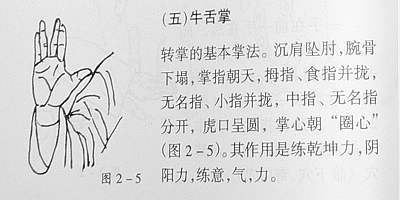 (五)牛舌掌
转掌的基本掌法。沉肩坠肘,腕骨
下塌,掌指朝天,拇指、食指并拢,
无名指、小指并拢,中指、无名指
分开,虎口呈圆,掌心朝“圈心”
(图2-5)。其作用是练乾坤力,阴
阳力,练意,气,力。
图2-5